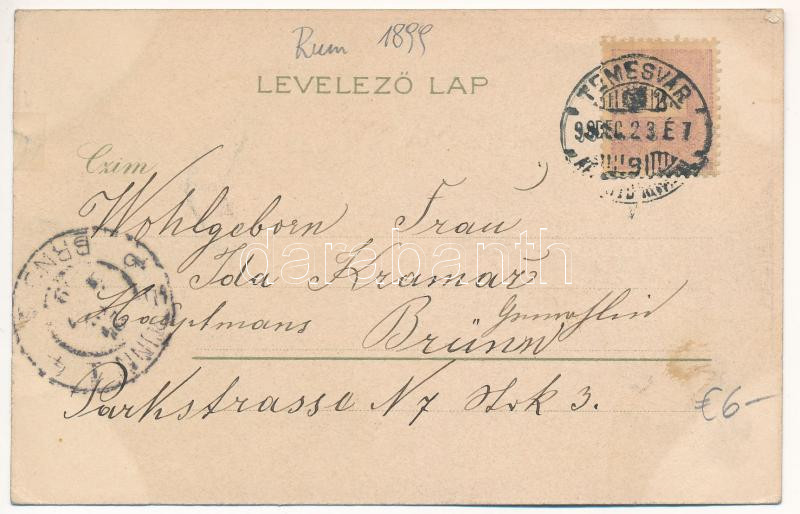 Rum 1899
LEVELEZŐ LAP
TEMESVÁR
98 DEC. 23 É 7
Czim
Wohlgeborn Frau
darabanth
Ida Kramař
Hauptmans Gemahlin
Brünn
Parkstrasse N 7 Stok 3.
€6-
BRNO
BRÜNN